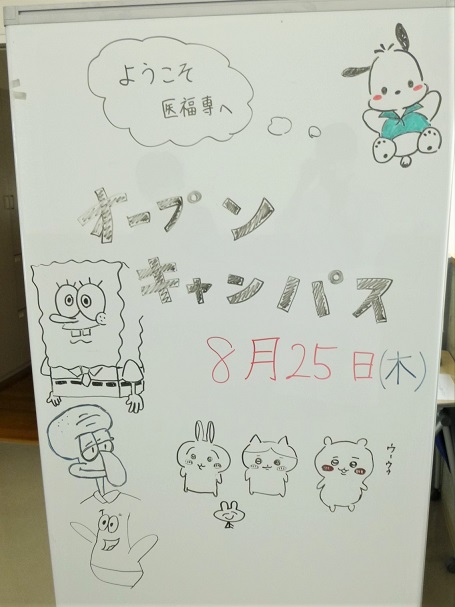 ようこそ
医福専へ
オープン
キャンパス
8月25日(木)
ウ…ウァ